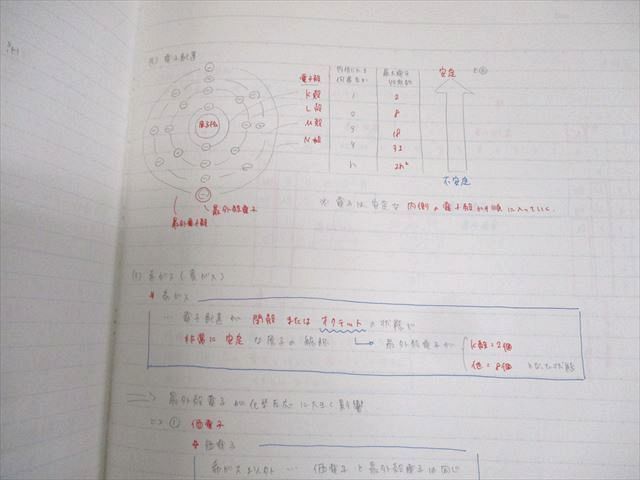 電子配置
電子殻 内側から何番目か 最大電子収容数 安定
K殻 1 2
L殻 2 8
M殻 3 18
N殻 4 32
n 2n²
不安定
原子核
最外殻電子
最外電子殻
※ 電子は安定な内側の電子殻から順に入っていく.
希ガス(貴ガス)
* 希ガス
… 電子配置が 閉殻 または オクテット の状態で
非常に 安定 な原子の総称 → 最外殻電子が K殻=2個
他=8個 となった状態
⇒ 最外殻電子が化学反応に大きく影響
⇒ ① 価電子
* 価電子
希ガス以外 … 価電子と最外殻電子は同じ